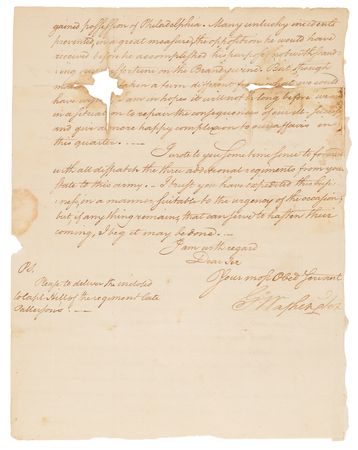 gained possession of Philadelphia. Many unlucky incidents
prevented, in a great measure, the opposition he would have
received before he accomplished his purpose, notwithstand-
ing our misfortune on the Brandywine. But though
taken a turn different we could
have I am in hope it will not be long before we are
in a situation to repair the consequences of our ill success
and give a more happy complexion to our affairs in
this quarter. —
I wrote to you some time since to forward
with all dispatch the three additional regiments from your
State to this army. I trust you have expedited this busi-
ness, in a manner suitable to the urgency of the occasion;
but, if any thing remains, that can serve to hasten their
coming, I beg it may be done. —
I am with regard
Dear Sir
Your most Obed Servant
G Washington
PS.
Please to deliver the inclosed
to Capt. Hill of the regiment late
Pattersons. —